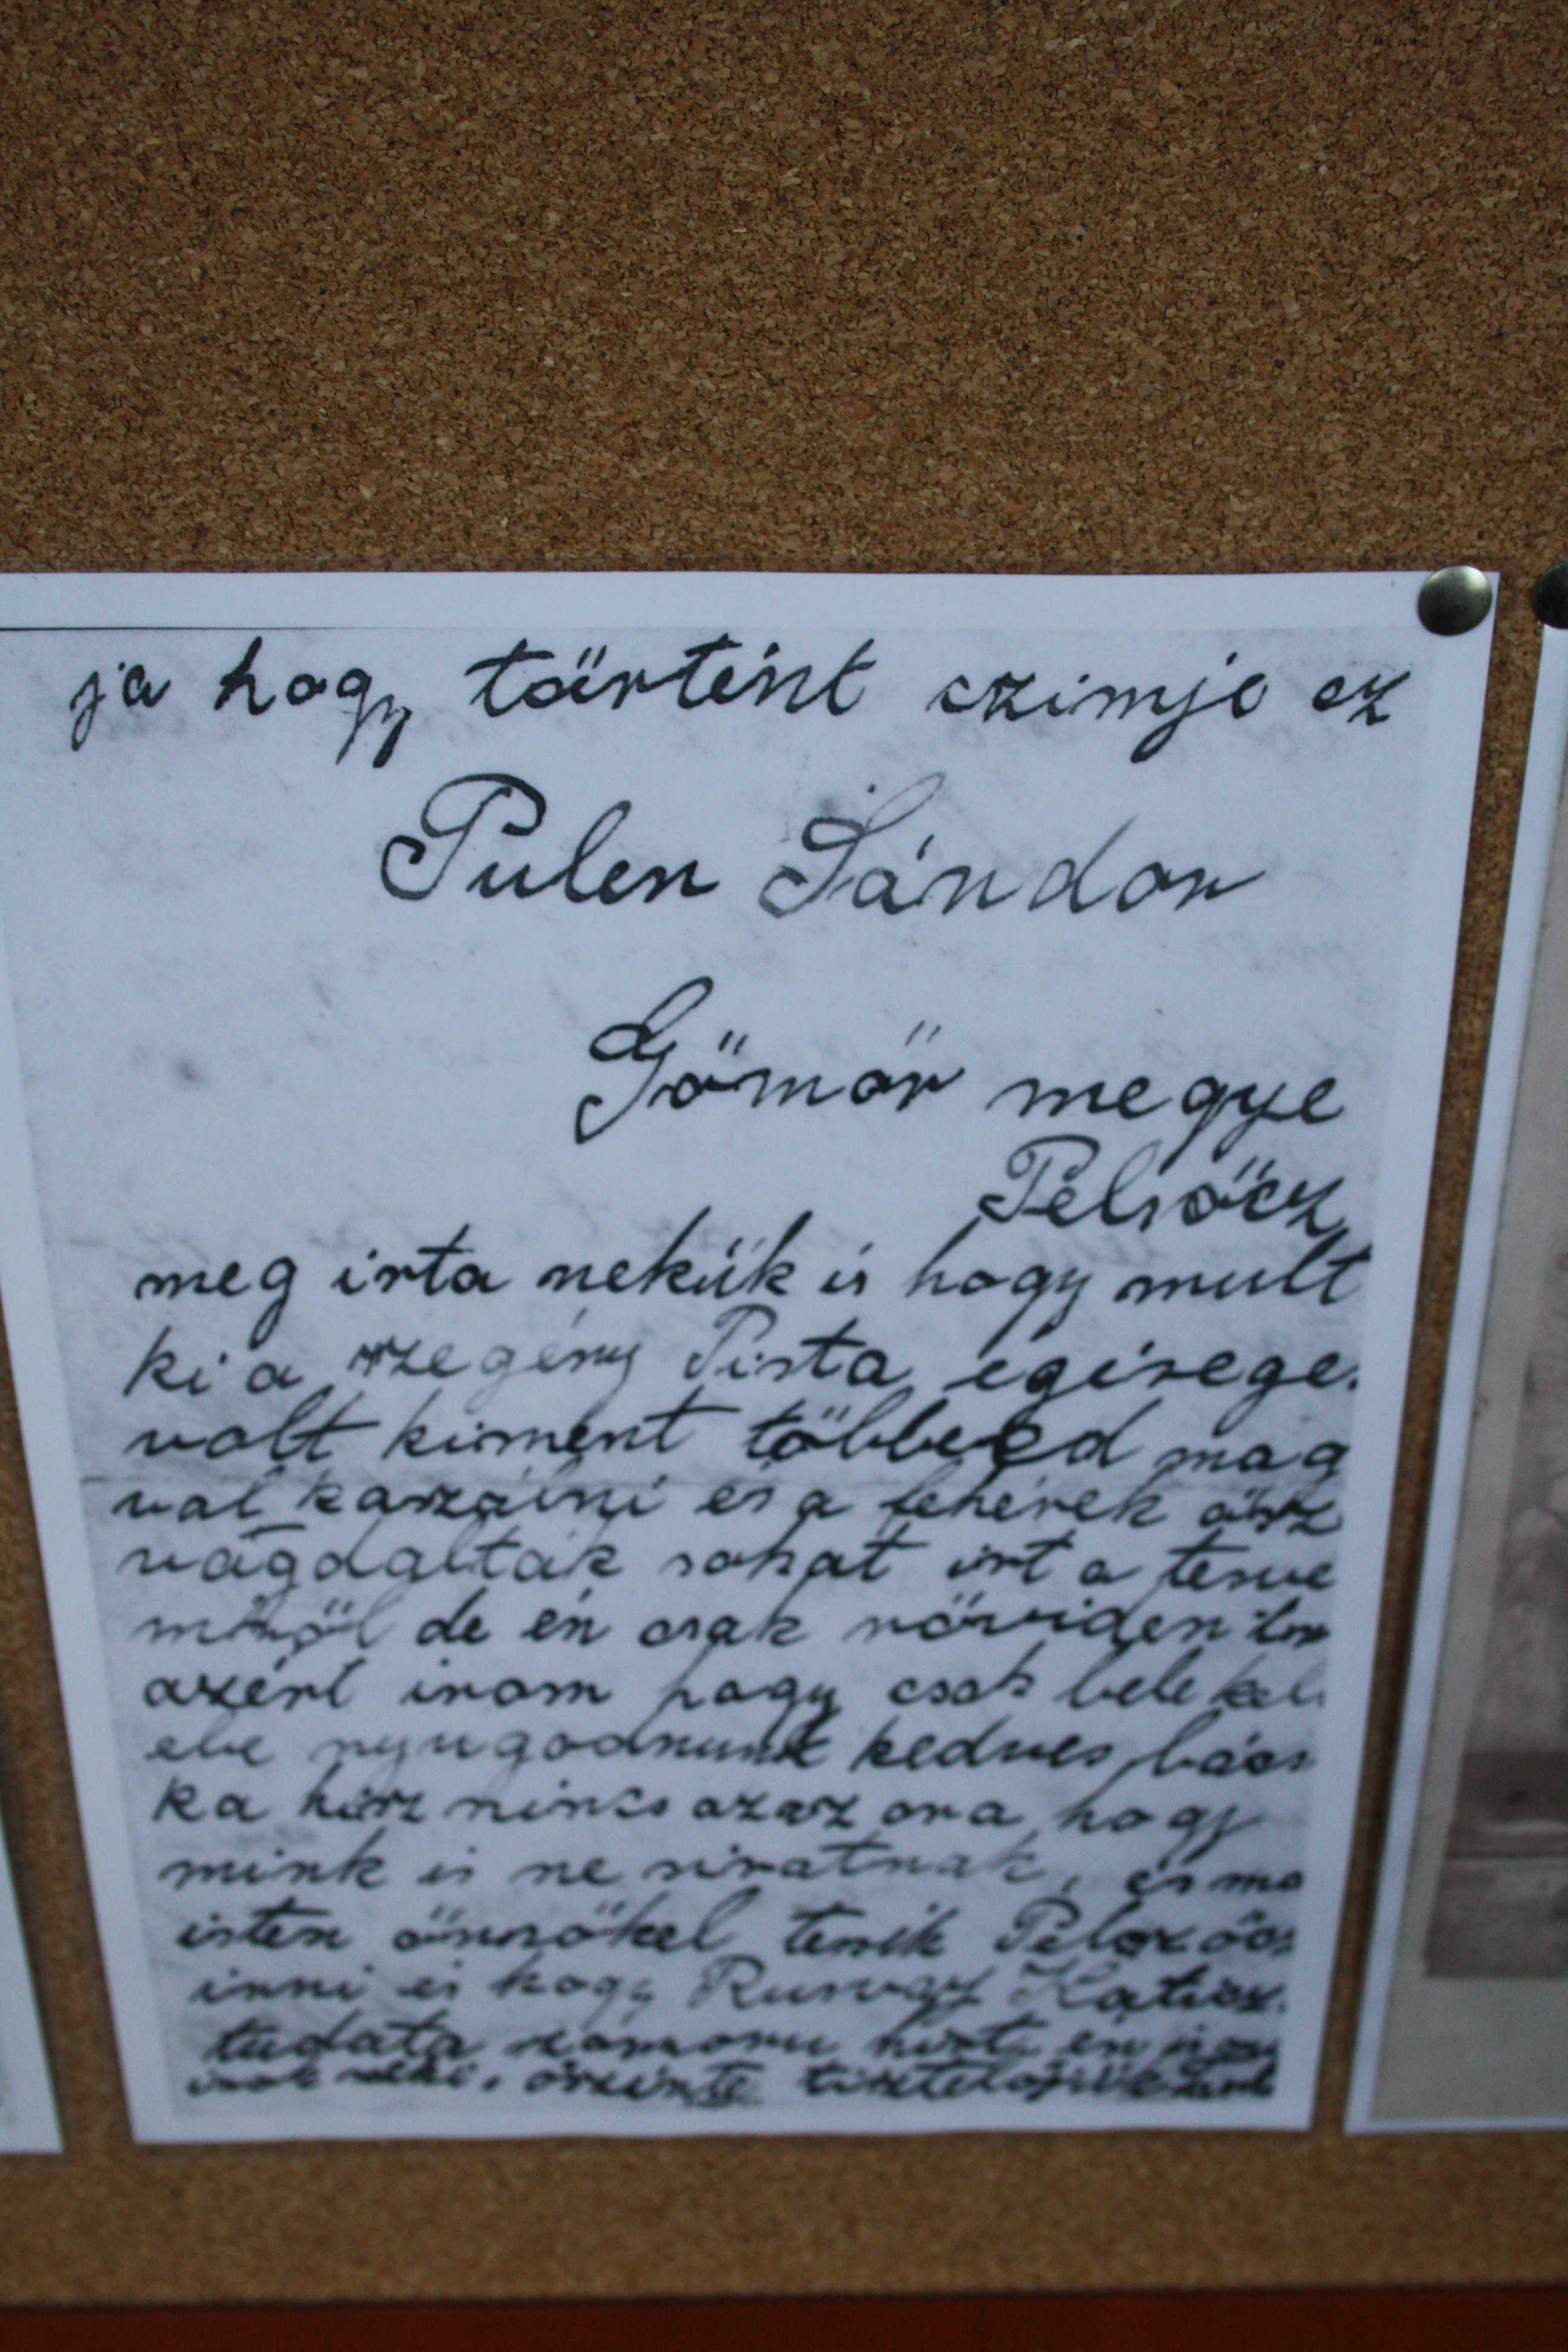 ja hogy történt czimje ez
Pulen Sándor
Gömör megye
Pelsőcz
meg irta nekük is hogy mult
ki a szegény Pista egésege.
volt kiment többeed mag
val kaszálni és a fehérek ösz
vágdalták sokat irt a
de én csak röviden
azért irom hogy csak bele kel
ebe nyugodnunk kedves bács
ka hisz nincs az az ora hogy
mink is ne siratnak, és ma
isten önnökel tessék Pelszőcz
irni és hogy Rusvay Katicz.
tudata szomoru hirt én
neki, őszinte tisztelőjük